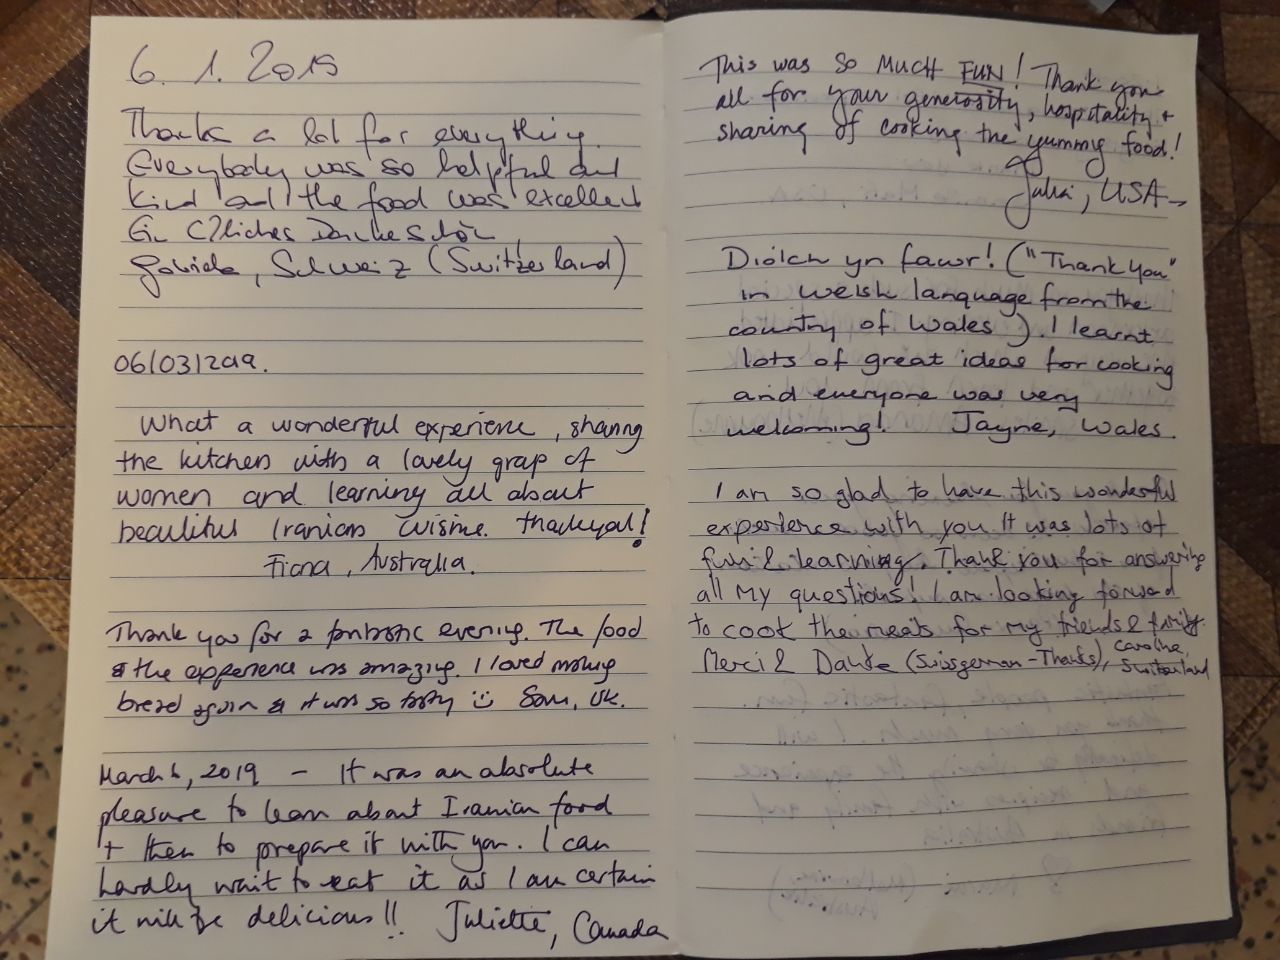 6. 1. 2019
Thanks a lot for everything.
Everybody was so helpful and
kind and the food was excellent
Ein Dankeschön,
Schweiz (Switzerland)
06/03/2019.
What a wonderful experience, sharing
the kitchen with a lovely group of
women and learning all about
beautiful Iranian cuisine. Thankyou!
Fiona, Australia.
Thank you for a fantastic evening. The food
& the experience was amazing. I loved making
bread again & it was so tasty ☺ Sam, UK.
March 6, 2019 – It was an absolute
pleasure to learn about Iranian food
+ then to prepare it with you. I can
hardly wait to eat it as I am certain
it will be delicious!! Juliette, Canada
This was so MUCH FUN! Thank you
all for your generosity, hospitality +
sharing of cooking the yummy food!
Julia, USA
Diolch yn fawr! ("Thank You"
in welsh language from the
country of Wales). I learnt
lots of great ideas for cooking
and everyone was very
welcoming! Jayne, Wales.
I am so glad to have this wonderful
experience with you. It was lots of
fun & learning. Thank you for answering
all my questions! I am looking forward
to cook the meals for my friends & family.
Merci & Danke (Swissgerman - Thanks), Caroline,
Switzerland